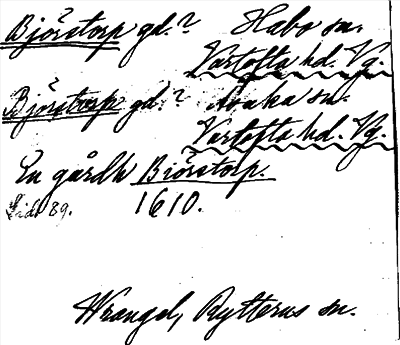 Björstorp gd.? Habo sn.
Vartofta hd. Vg.
Björstorp gd.? Acaka sn.
Vartofta hd. Vg.
En gårdh Biörstorp.
89. 1610.
Wrangel, Rytterus sn.